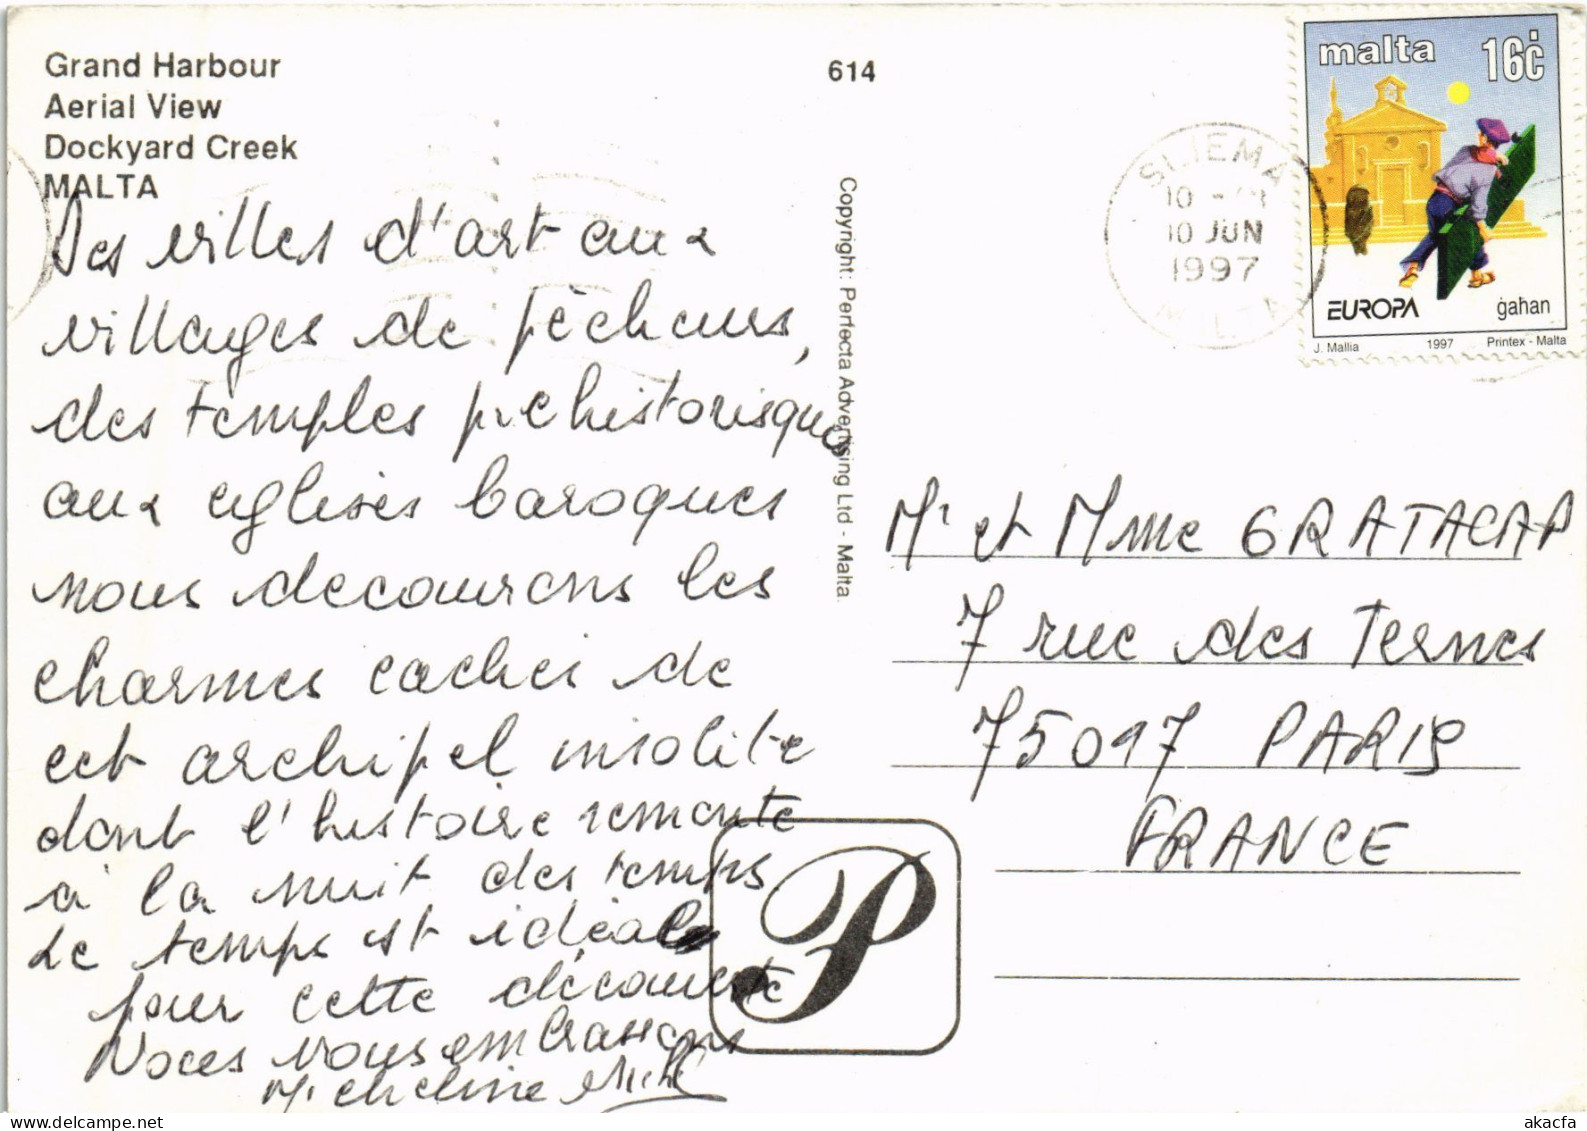 Grand Harbour
Aerial View
Dockyard Creek
MALTA
614
Des villes d'art aux
villages de pêcheurs,
des temples préhistoriques
aux eglises baroques
nous decouvrons les
charmes cachés de
cet archipel insolite
dont l'histoire remonte
à la nuit des temps
Le temps est idéale
pour cette découverte
Nous vous embrassons
Micheline
Copyright: Perfecta Advertising Ltd - Malta.
malta 16ċ
EUROPA ġahan
J. Mallia 1997 Printex - Malta
SLIEMA
10 JUN
1997
MALTA
Mr et Mme GRATACAP
7 rue des Ternes
75017 PARIS
FRANCE
P
delcampe.net
akacfa